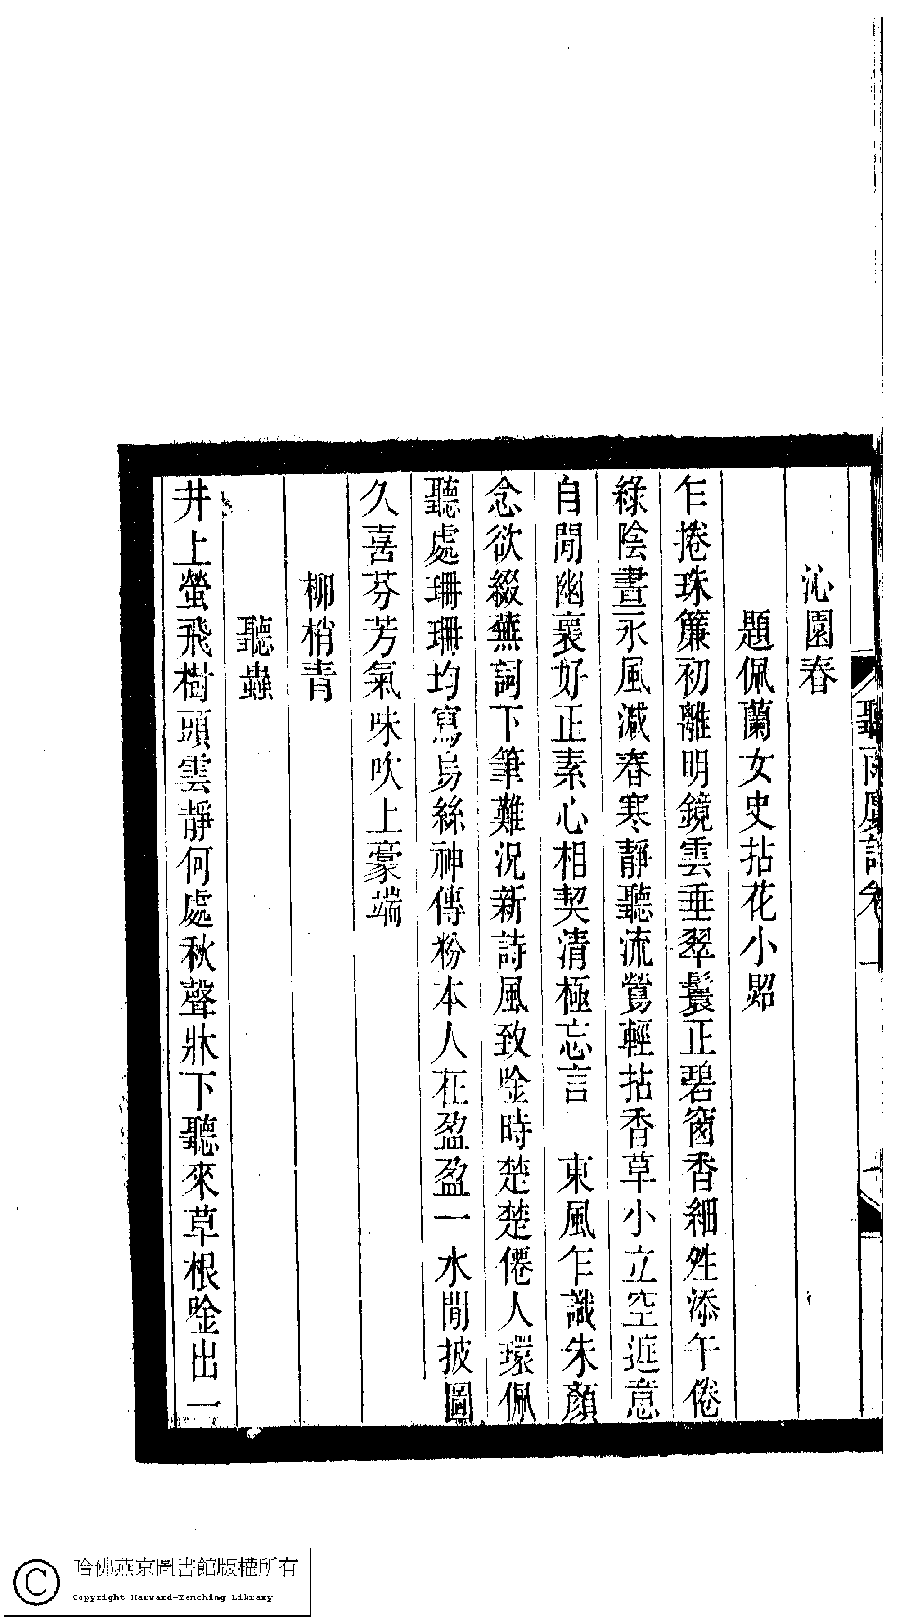 聽雨廬詞卷一
沁園春
題佩蘭女史拈花小照
乍捲珠簾初離明鏡雲垂翠鬟正碧窗香細甡添午倦
綠陰晝永風減春寒靜聽流鶯輕拈香草小立空庭意
自閒幽褱好正素心相契清極忘言　東風乍識朱顏
念欲綴蕪詞下筆難況新詩風致唫時楚楚僊人環佩
聽處珊珊均寫烏絲神傳粉本人在盈盈一水閒披圖
久喜芬芳氣味吹上豪端
柳梢青
聽蟲
井上螢飛樹頭雲靜何處秋聲牀下聽來草根唫出一
哈佛燕京圖書館版權所有
Copyright Harvard-Yenching Library